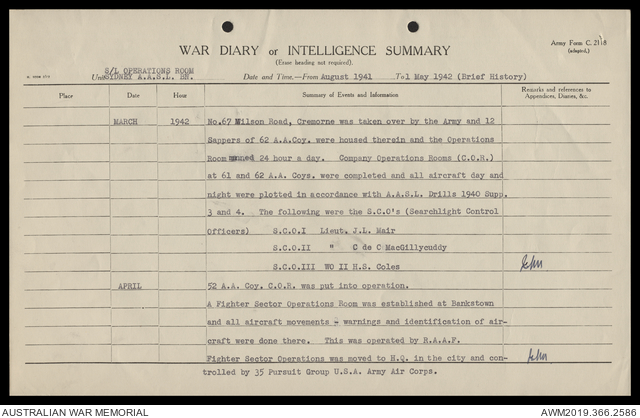 WAR DIARY or INTELLIGENCE SUMMARY
Army Form C. 2118
(adapted.)
(Erase heading not required).
S/L OPERATIONS ROOM
Unit SYDNEY A.A.S.L. BN. Date and Time.—From August 1941 To 1 May 1942 (Brief History)
Place Date Hour Summary of Events and Information Remarks and references to
Appendices, Diaries, &c.
MARCH 1942 No.67 Wilson Road, Cremorne was taken over by the Army and 12
Sappers of 62 A.A.Coy. were housed therein and the Operations
Room manned 24 hour a day. Company Operations Rooms (C.O.R.)
at 61 and 62 A.A. Coys. were completed and all aircraft day and
night were plotted in accordance with A.A.S.L. Drills 1940 Supp.
3 and 4. The following were the S.C.O's (Searchlight Control
Officers) S.C.O.I Lieut. J.L. Mair
S.C.O.II " C de C MacGillycuddy
S.C.O.III WO II H.S. Coles
APRIL 52 A.A. Coy. C.O.R. was put into operation.
A Fighter Sector Operations Room was established at Bankstown
and all aircraft movements - warnings and identification of air-
craft were done there. This was operated by R.A.A.F.
Fighter Sector Operations was moved to H.Q. in the city and con-
trolled by 35 Pursuit Group U.S.A. Army Air Corps.
AUSTRALIAN WAR MEMORIAL AWM2019.366.2586